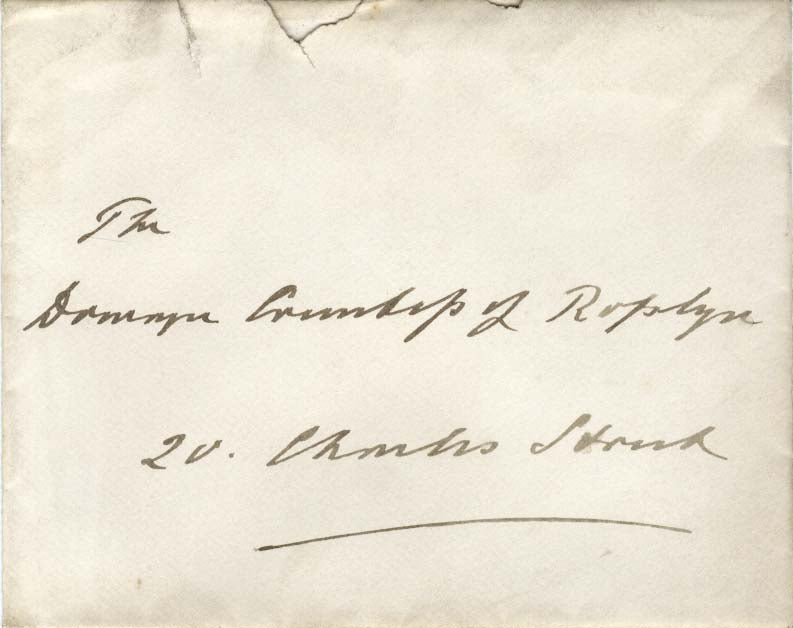 The
Dowager Countess of Rosslyn
20. Charles Street